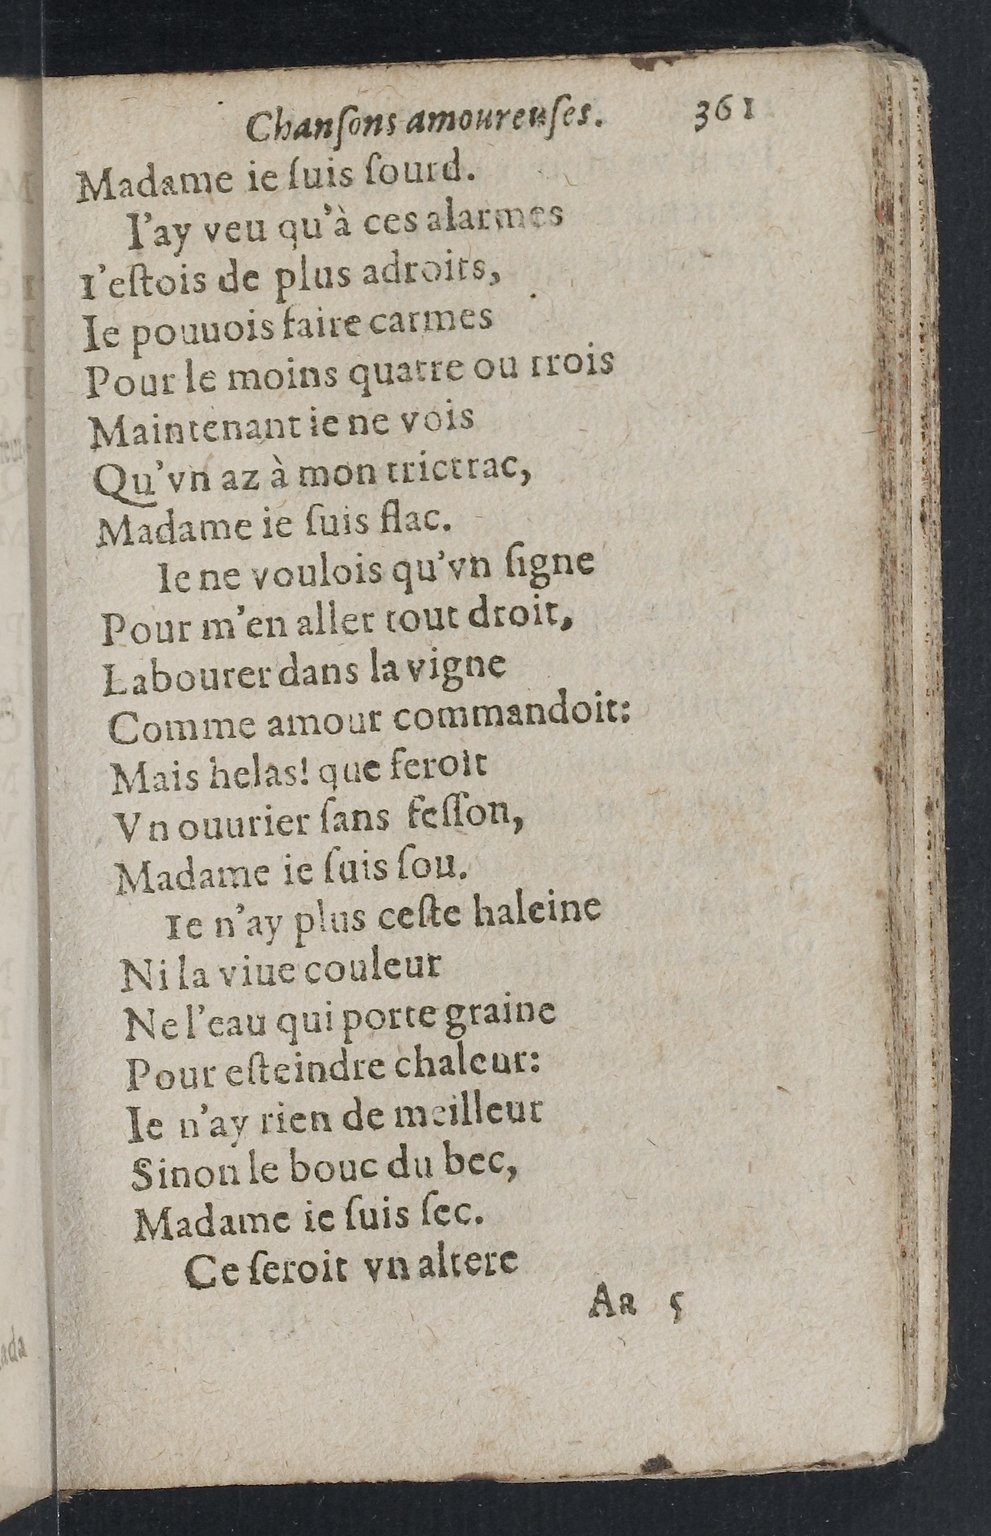 Chanſons amoureuſes. 361
Madame ie ſuis ſourd.
I'ay veu qu'à ces alarmes
I'eſtois de plus adroits,
Ie pouuois faire carmes
Pour le moins quatre ou trois
Maintenant ie ne vois
Qu'vn az à mon trictrac,
Madame ie ſuis flac.
Ie ne voulois qu'vn ſigne
Pour m'en aller tout droit,
Labourer dans la vigne
Comme amour commandoit:
Mais helas! que feroit
Vn ouurier ſans feſſon,
Madame ie ſuis ſou.
Ie n'ay plus ceſte haleine
Ni la viue couleur
Ne l'eau qui porte graine
Pour eſteindre chaleur:
Ie n'ay rien de meilleur
Sinon le bouc du bec,
Madame ie ſuis ſec.
Ce ſeroit vn altere
Aa 5